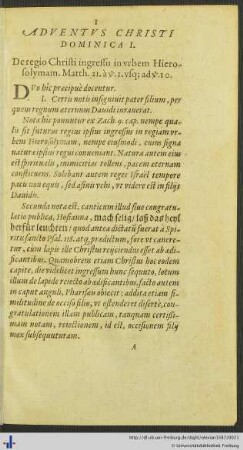 1
ADVENTVS CHRISTI
DOMINICA I.
De regio Christi ingressu in vrbem Hiero-
solymam. Matth. 21. à v. 1. vsq; ad v. 10.
DVo hic præcipuè docentur.
I. Certis notis insignivit pater filium, per
quem regnum æternum Davidi iuraverat.
Nota hîc ponuntur ex Zach. 9. cap. nempe qua-
lis sit futurus regius ipsius ingressus in regiam vr-
bem Hierosolymam, nempe eiusmodi, cum signa
natura ipsius regni conveniant. Natura autem eius
est spiritualis, immicities tollens, pacem æternam
constituens. Solebant autem reges Israel tempore
pacis non equis, sed asinis vehi, vt videre est in filijs
Davidis.
Secunda nota est, canticum illud siue congratu-
latio publica, Hosanna, mach selig, laß das heyl
herfür leuchten; quod antea dictatū fuerat à Spi-
ritu sancto Psal. 118. atq; prædictum, fore vt canere-
tur, cùm lapis ille Christus reijciendus esset ab ædi-
ficantibus. Quamobrem etiam Christus hoc eodem
capite, die videlicet ingressum hunc sequuto, totum
illum de lapide reiecto ab ædificantibus, facto autem
in caput anguli, Pharisæis obiecit: addita etiam si-
militudine de occiso filio, vt ostenderet disertè, con-
gratulationem illam publicam, tanquam certissi-
mam notam, reiectionem, id est, occisionem filij
mox subsequuturam.
A
http://dl.ub.uni-freiburg.de/diglit/
© Universitätsbibliothek Freiburg